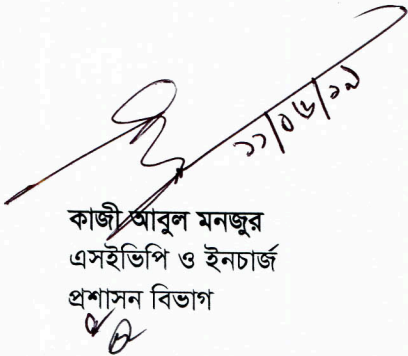 ১১/০৬/১৯
কাজী আবুল মনজুর
এসইভিপি ও ইনচার্জ
প্রশাসন বিভাগ